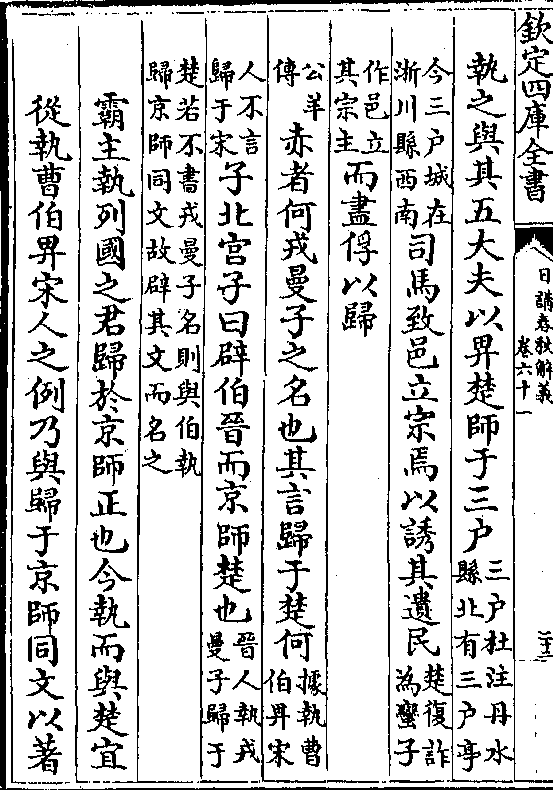 欽定四庫全書
日講春秋解義
卷六十一
二十三
執之與其五大夫以畀楚師于三户三户杜注丹水縣北有三户亭
今三户城在淅川縣西南司馬致邑立宗焉以誘其遺民楚復詐為蠻子
作邑立其宗主而盡俘以歸
公羊傳赤者何戎曼子之名也其言歸于楚何據執曹伯畀宋
人不言歸于宋子北宮子曰辟伯晉而京師楚也晉人執戎曼子歸于
楚若不書戎曼子名則與伯執歸京師同文故辟其文而名之
霸主執列國之君歸於京師正也今執而與楚宜
從執曹伯畀宋人之例乃與歸于京師同文以著